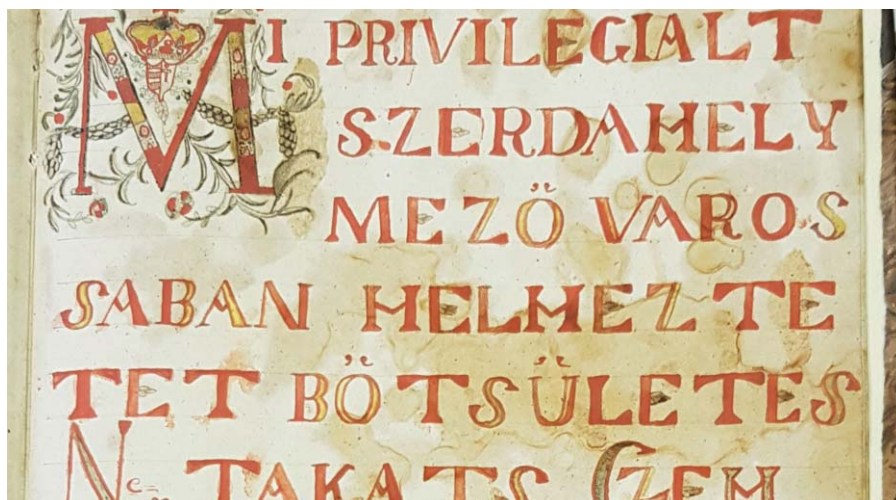 MI PRIVILEGIALT
SZERDAHELY
MEZŐ VAROS
SABAN HELMEZTE
TET BŐTSŰLETES
N. TAKATS CZEH